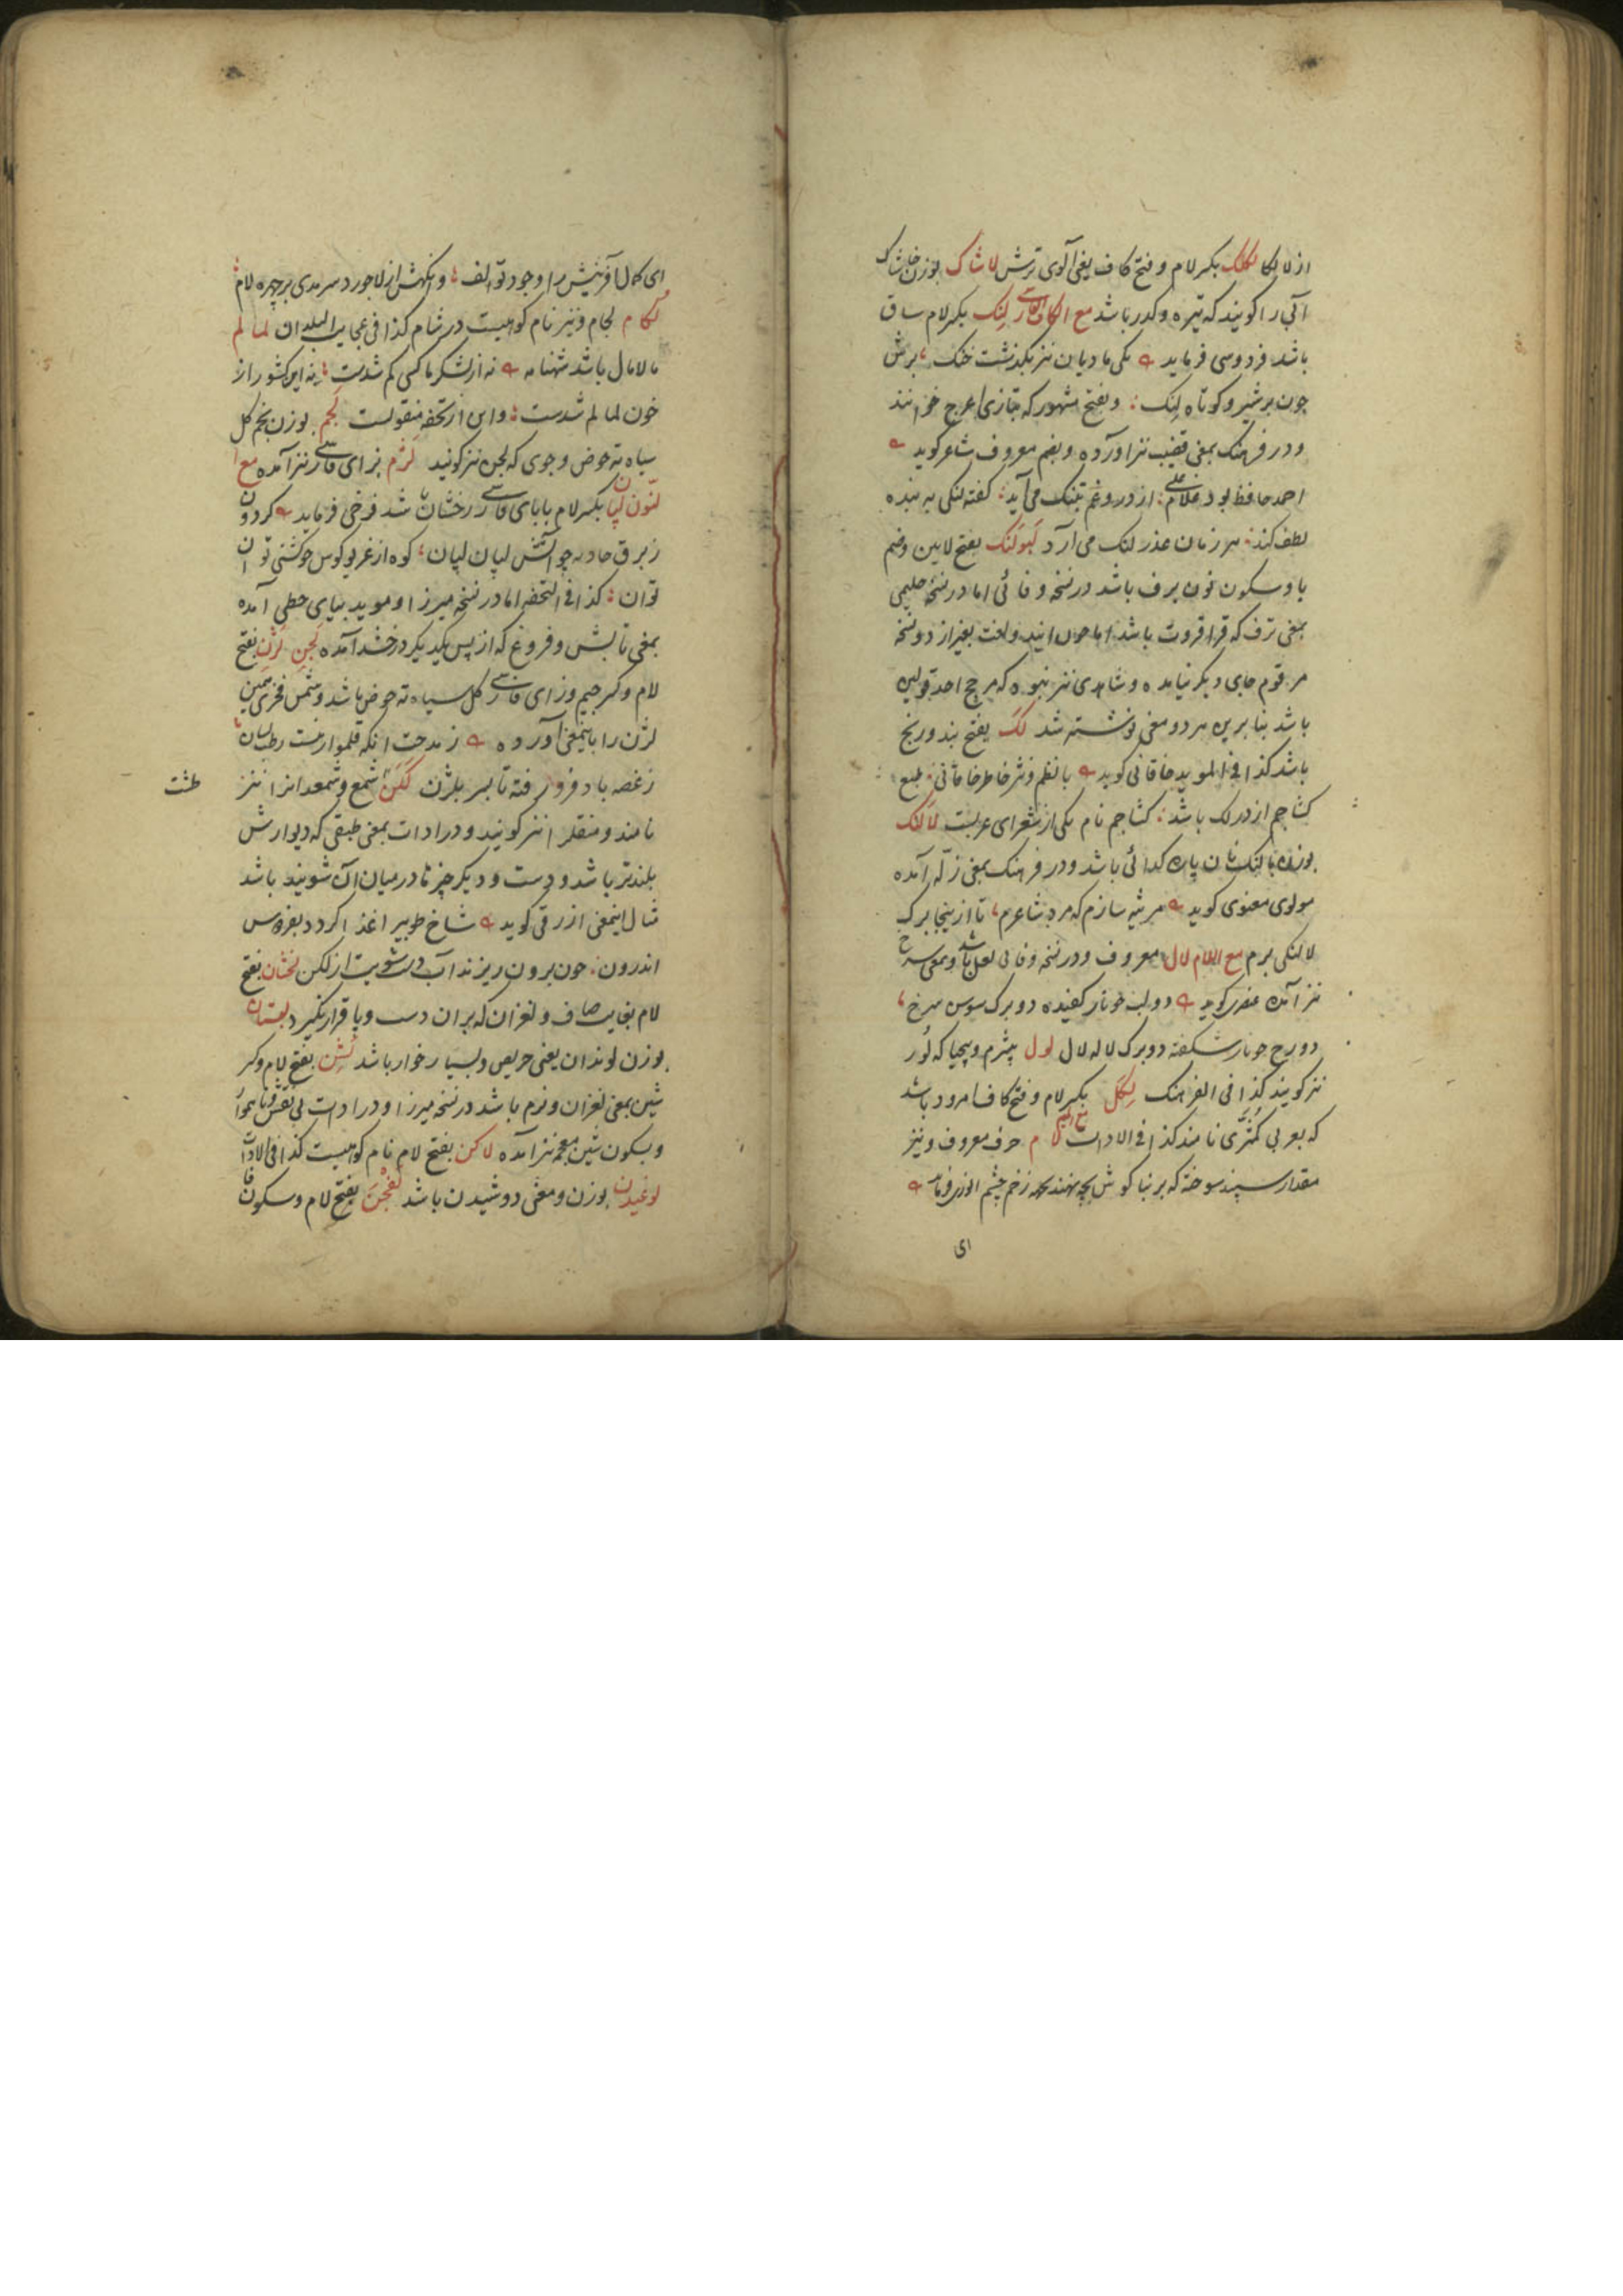 از لالکا لکلک بکسر لام و فتح کاف یعنی آلوی ترش لاشاک بوزن خاشاک
آبی را گویند که تیره و کدر باشد مع الکاف الفارسی لنک بکسر لام ساق
باشد فردوسی فرماید یکی مادیان نیز بگذشت خنک برش
چون بر شیر و کوتاه لنک و بفتح مشهور که بتازی اعرج خوانند
و در فرهنک بمعنی قضیب نیز آورده و بضم معروف شاعر گوید
احمد حافظ بود غلام علی از دروغم بتنک می آید گفته لنکی به بنده
لطف کند هر زمان عذر لنک می آرد لبولنک بفتح لامین و ضم
با و سکون نون برف باشد در نسخه وفائی اما در نسخه حلیمی
بمعنی ترف که قراقروت باشد اما چون این دو لغت بغیر از دو نسخه
مرقوم جای دیگر نیامده و شاهدی نیز نبوده که مرجح احد قولین
باشد بنا برین هر دو معنی نوشته شد لک بفتح بند و رنج
باشد کذا فی الموید خاقانی گوید با نظم و نثر خاطر خاقانی طبع
کشاجم از در لک باشد کشاجم نام یکی از شعرای عربست لالنک
بوزن پالنک نان پاره گدائی باشد و در فرهنک بمعنی زله آمده
مولوی معنوی گوید مرثیه سازم که مرد شاعرم تا از اینجا برک
لالنکی برم مع اللام لال معروف و در نسخه وفائی لعل باشد و بمعنی سرخ
نیز آمده عنصری گوید دو لب چو نار کفیده دو برک سوسن سرخ
دو رخ چو نار شکفته دو برک لاله لال لول بیشرم و بیحیا که لور
نیز گویند کذا فی الفرهنک لکل بکسر لام و فتح کاف امرود باشد
که بعربی کمثری نامند کذا فی الادات مع المیم لام حرف معروف و نیز
مقدار سپند سوخته که بر بناگوش بچه نهند بجهة زخم چشم انوری فرماید
ای
ای کمال آفرینش را وجود تو الف وانگهش از لاجورد سرمدی بر چهره لام
لکام لجام و نیز نام کوهیست در شام کذا فی عجایب البلدان لمالم
مالامال باشد شهنامه نه از لشکر ما کسی کم شدست نه این کشور از
خون لمالم شدست و این از تحفه منقولست لجم بوزن بجم کل
سیاه ته حوض و جوی که لجن نیز گویند لژم بزای فارسی نیز آمده مع
النون لپان بکسر لام با بای فارسی رخشان باشد فرخی فرماید گردون
ز برق حادثه چو آتش لپان لپان کوه از غریو کوس چو کشتی توان
توان کذا فی التحفه اما در نسخه میرزا و موید بیای حطی آمده
بمعنی تابش و فروغ که از پس یکدیگر درخشد آمده لجن لژن بفتح
لام و کسر جیم و زای فارسی کل سیاه ته حوض باشد و شمس فخری همین
لژن را باینمعنی آورده ز مدحت آنکه قلمواریست رطب لسان
ز غصه باد فرو رفته تا بسر بلژن لکن شمع و شمعدانرا نیز
نامند و منقلرا نیز گویند و در ادات بمعنی طبقی که دیوارش
طشت
بلندتر باشد و دست و دیگر چیزها در میان آن شویند باشد
مثال اینمعنی ازرقی گوید شاخ طوبی را غذا گردد بفردوس
اندرون چون برون ریزند آب دست شویت از لکن لخشان بفتح
لام بغایت صاف و لغزان که بر آن دست و پا قرار نگیرد لبستان
بوزن لوندان یعنی حریص و بسیار خوار باشد لشن بفتح لام و کسر
شین بمعنی لغزان و نرم باشد در نسخه میرزا و در ادات بی نقش و ناهموار
و بسکون شین معجمه نیز آمده لاکن بفتح لام نام کوهیست کذا فی الادات
لوغیدن بوزن و معنی دوشیدن باشد لفجن بفتح لام و سکون فا